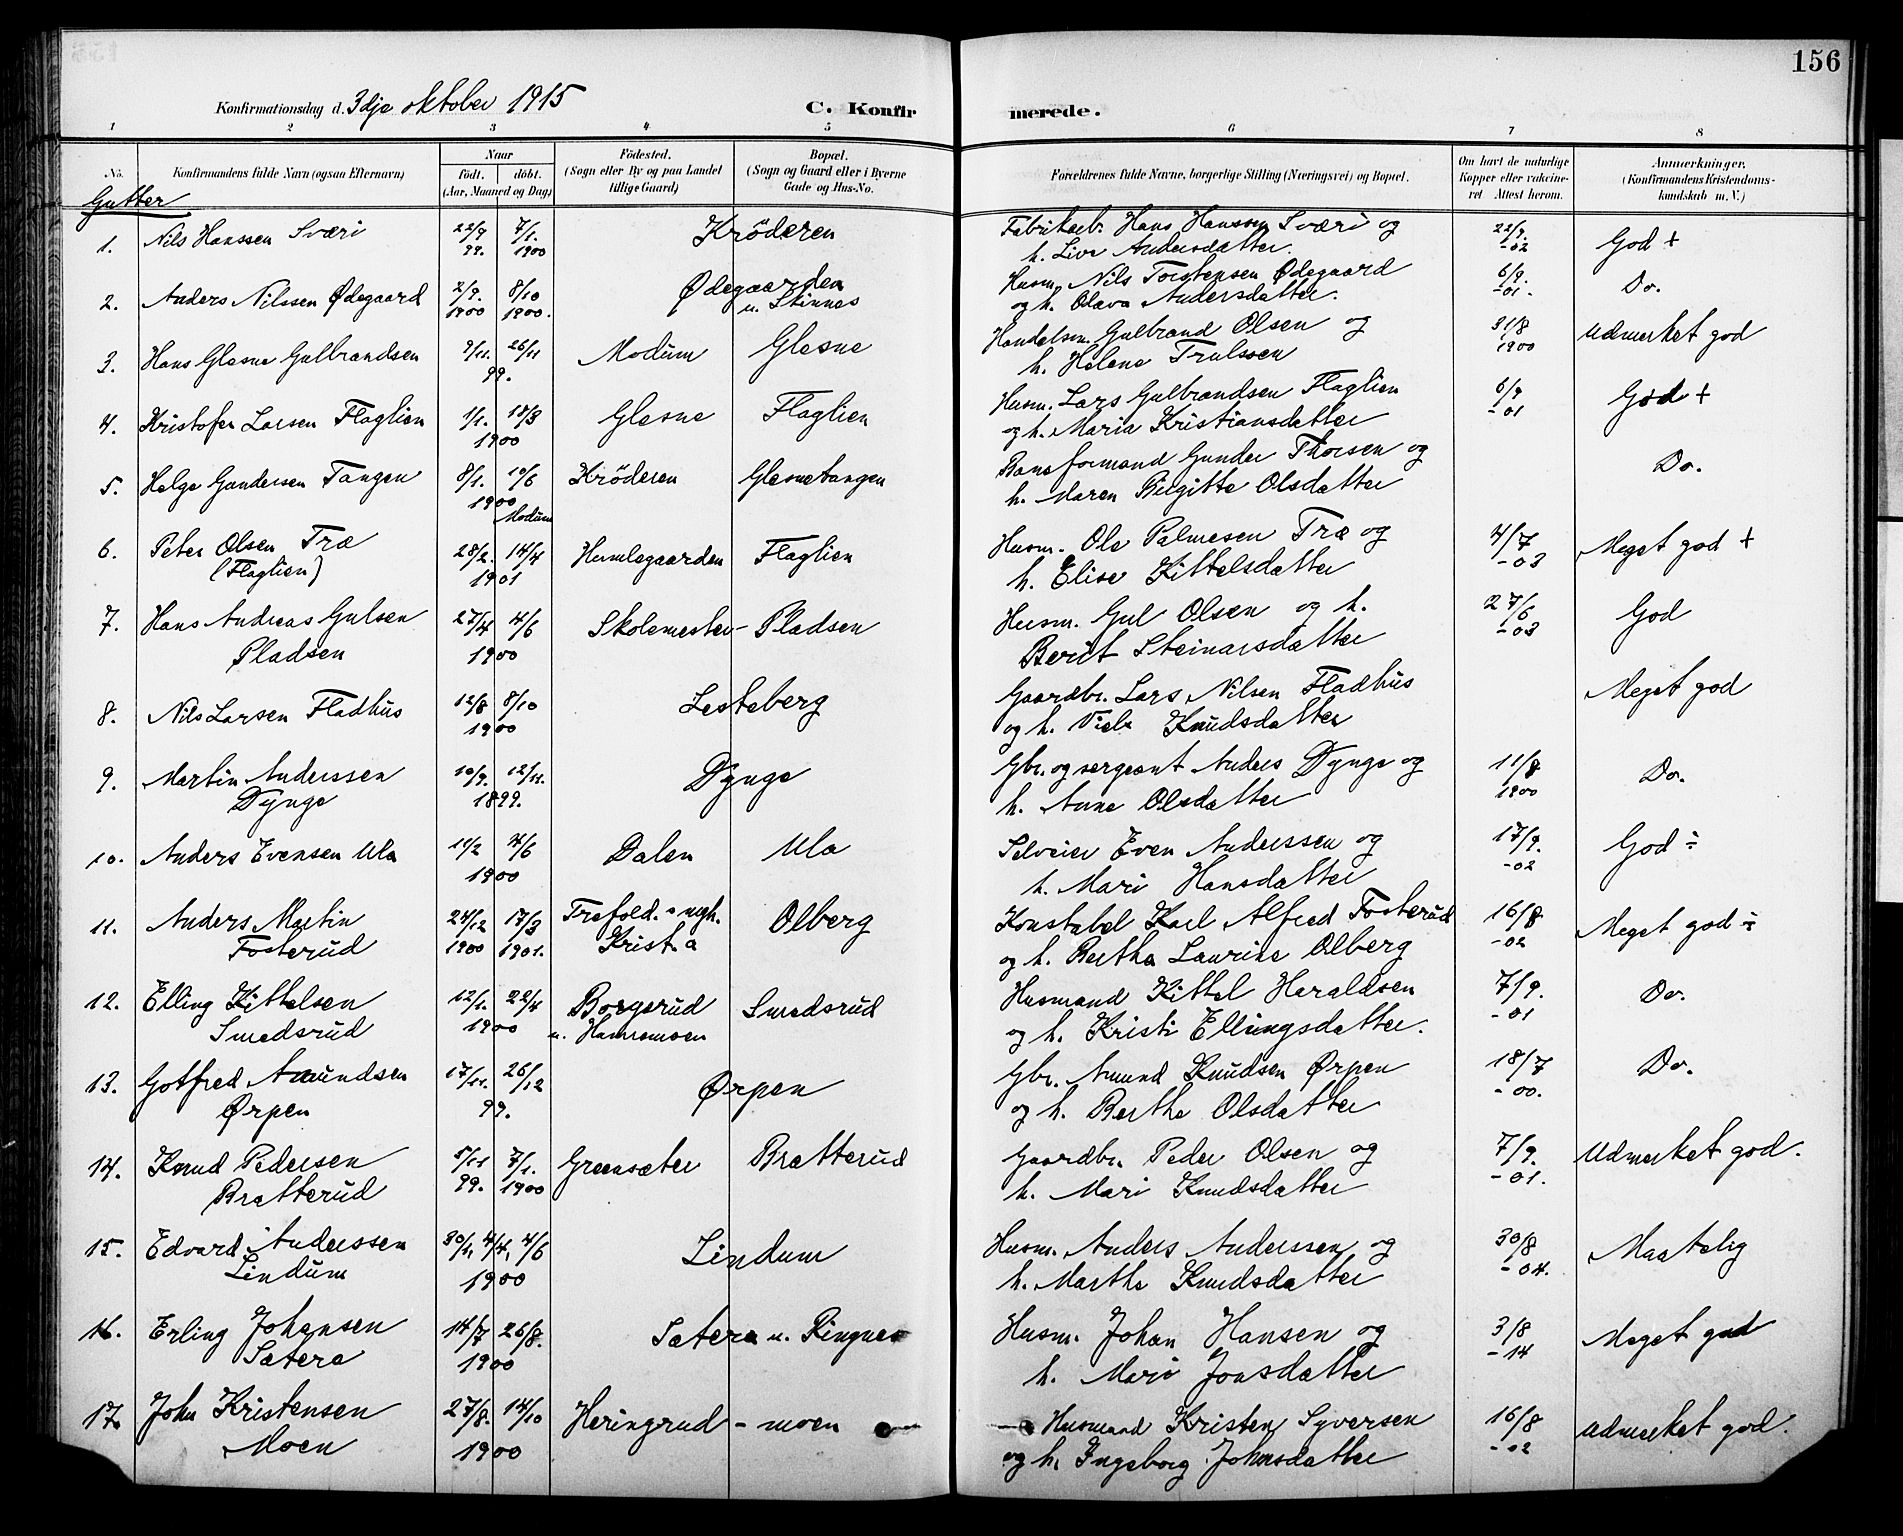 156
Konfirmationsdag d. 3dje oktober 1915
C. Konfirmerede.
1 2 3 4 5 6 7 8
No.
Konfirmandens fulde Navn (ogsaa Efternavn)
Naar
födt. döbt.
(Aar, Maaned og Dag)
Födested.
(Sogn eller By og paa Landet
tillige Gaard)
Bopæl.
(Sogn og Gaard eller i Byerne
Gade og Hus-No.
Forældrenes fulde Navne, borgerlige Stilling (Næringsvei) og Bopæl.
Om havt de naturlige
Kopper eller vakcine-
ret Attest herom.
Anmærkninger.
(Konfirmandens Kristendoms-
kundskab m. V.)
Gutter
1. Nils Hanssen Sværi 22/9 99. 7/1. 1900 Kröderen Fabrikarb. Hans Hanssen Sværi og 22/9. -02 God +
h. Live Andersdatter.
2. Anders Nilssen Ødegaard 2/9. 1900 8/10 1900. Ødegaarden u. Skinnes Husm. Nils Torstensen Ødegaard 6/9. -01. Do.
og h. Olava Andersdatter.
3. Hans Glesne Gulbrandsen 9/11. 26/11 99. Modum Glesne Handelsm. Gulbrand Olsen og 31/8 1900 Udmerket god
h. Helene Trulssen
4. Kristofer Larsen Flaglien 1/1. 18/3 1900 Glesne Flaglien Husm. Lars Gulbrandsen Flaglien 6/9 -01 God +
og h. Maria Kristiansdatter
5. Helge Gundersen Tangen 8/1. 10/6 1900 Kröderen Glesnetangen Baneformand Gunder Thorsen og Do.
h. Maren Birgitte Olsdatter
Modum
6. Peter Olsen Træ 28/2. 14/4 1901 Humlegaarden Flaglien Husm. Ole Palmesen Træ og 4/7 -03 Meget god +
(Flaglien) h. Elise Kittelsdatter
7. Hans Andreas Gulsen 27/4 4/6 1900 Skolemester- Pladsen Husm. Gul Olsen og h. 27/6 -03 God
Pladsen Berit Steinarsdatter
8. Nils Larsen Fladhus 12/8 8/10 1900 Lesteberg Gaardbr. Lars Nilsen Fladhus Meget god
og h. Knudsdatter
9. Martin Anderssen 10/9. 12/11. 1899. Dynge Gbr. og sergeant Anders Dynge og 11/8 1900 Do.
Dynge h. Anne Olsdatter
10. Anders Evensen Ula 4/6 1900 Dalen Ula Selveier Even Anderssen og 17/9. -02 God ÷
h. Mari Hansdatter
11. Anders Martin 24/12 1900 17/3 1901. Trefold. mgh. Krist.a Olberg Konstabel Karl Alfred Fosterud 16/8 -02 Meget god ÷
Fosterud og h. Bertha Laurine Olberg
12. Elling Kittelsen 12/1. 22/4 1900 Borgerud Smedsrud Husmand Kittel Haraldsen 7/9. -01 Do.
Smedsrud u. Hamremoen og h. Kristi Ellingsdatter.
13. Gotfred Amundsen 17/11. 26/12 99. Ørpen Gbr. Amund Knudsen Ørpen 18/7 -00. Do.
Ørpen og h. Berthe Olsdatter
14. Knud Pedersen 5/11 99. 7/1. 1900 Grøensæter Bratterud Gaardbr. Peder Olsen og 7/9. -01. Udmerket god.
Bratterud h. Mari Knudsdatter
15. Edvard Anderssen 30/1, 4/4, 4/6 1900 Lindum Husm. Anders Anderssen og 30/8 -04. Maatelig
Lindum h. Marthe Knudsdatter
16. Erling Johansen 14/7 26/8. 1900 Sætera u. Ringnes Husm. Johan Hansen og 3/8 -14 Meget god
Sætera h. Mari Jonsdatter
17. John Kristensen 27/8. 14/10 1900 Heringrud - moen Husmand Kristen Syversen 16/8 -02 Udmerket god.
Moen og h. Ingeborg Johnsdatter